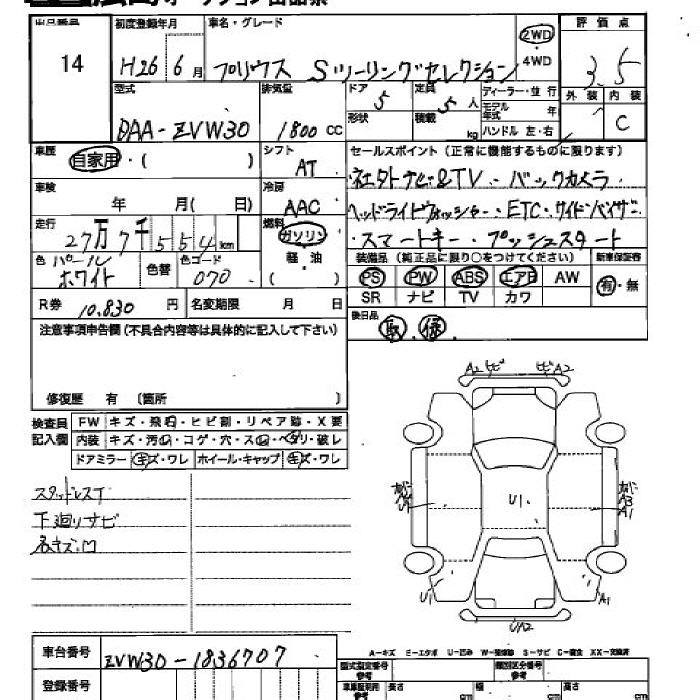 出品番号
14
初度登録年月
H26 6月
車名・グレード
プリウス Sツーリングセレクション
2WD
・
4WD
評価点
3.5
外装 内装
C
型式
DAA-ZVW30
排気量
1800 CC
ドア
5
形状
定員
5人
積載
kg
ディーラー・並行
モデル年式 年
ハンドル 左・右
車歴
自家用・( )
シフト
AT
セールスポイント (正常に機能するものに限ります)
社外ナビ&TV・バックカメラ
ヘッドライトウォッシャー・ETC・サイドバイザー
スマートキー・プッシュスタート
車検
年 月( 日)
冷房
AAC
走行
27万7千554km
燃料
ガソリン
軽・油
( )
色 パールホワイト
色替
色コード
070
装備品 (純正品に限り○をつけてください)
新車保証書
PS PW ABS エアB AW
SR ナビ TV カワ
有・無
R券 10,830 円
名変期限 月 日
後日品
取 保
注意事項申告欄 (不具合内容等は具体的に記入して下さい)
修復歴 有 〔箇所 〕
検査員記入欄
FW キズ・飛石・ヒビ割・リペア跡・X要
内装 キズ・汚れ・コゲ・穴・スレ・ヘタリ・破レ
ドアミラー キズ・ワレ ホイール・キャップ キズ・ワレ
スタッドレスT
下廻りサビ
各キズ・凹
A2 ヒビ
ヒビ A2
U1
A3
A1
U1
A1
UA2
A-キズ E-エクボ U-凹み W-補修跡 S-サビ C-腐食 XX-交換済
車台番号
ZVW30-1836707
登録番号
型式指定番号
参考
類別区分番号
参考
車検証記載
参考
長さ cm
幅 cm
高さ cm